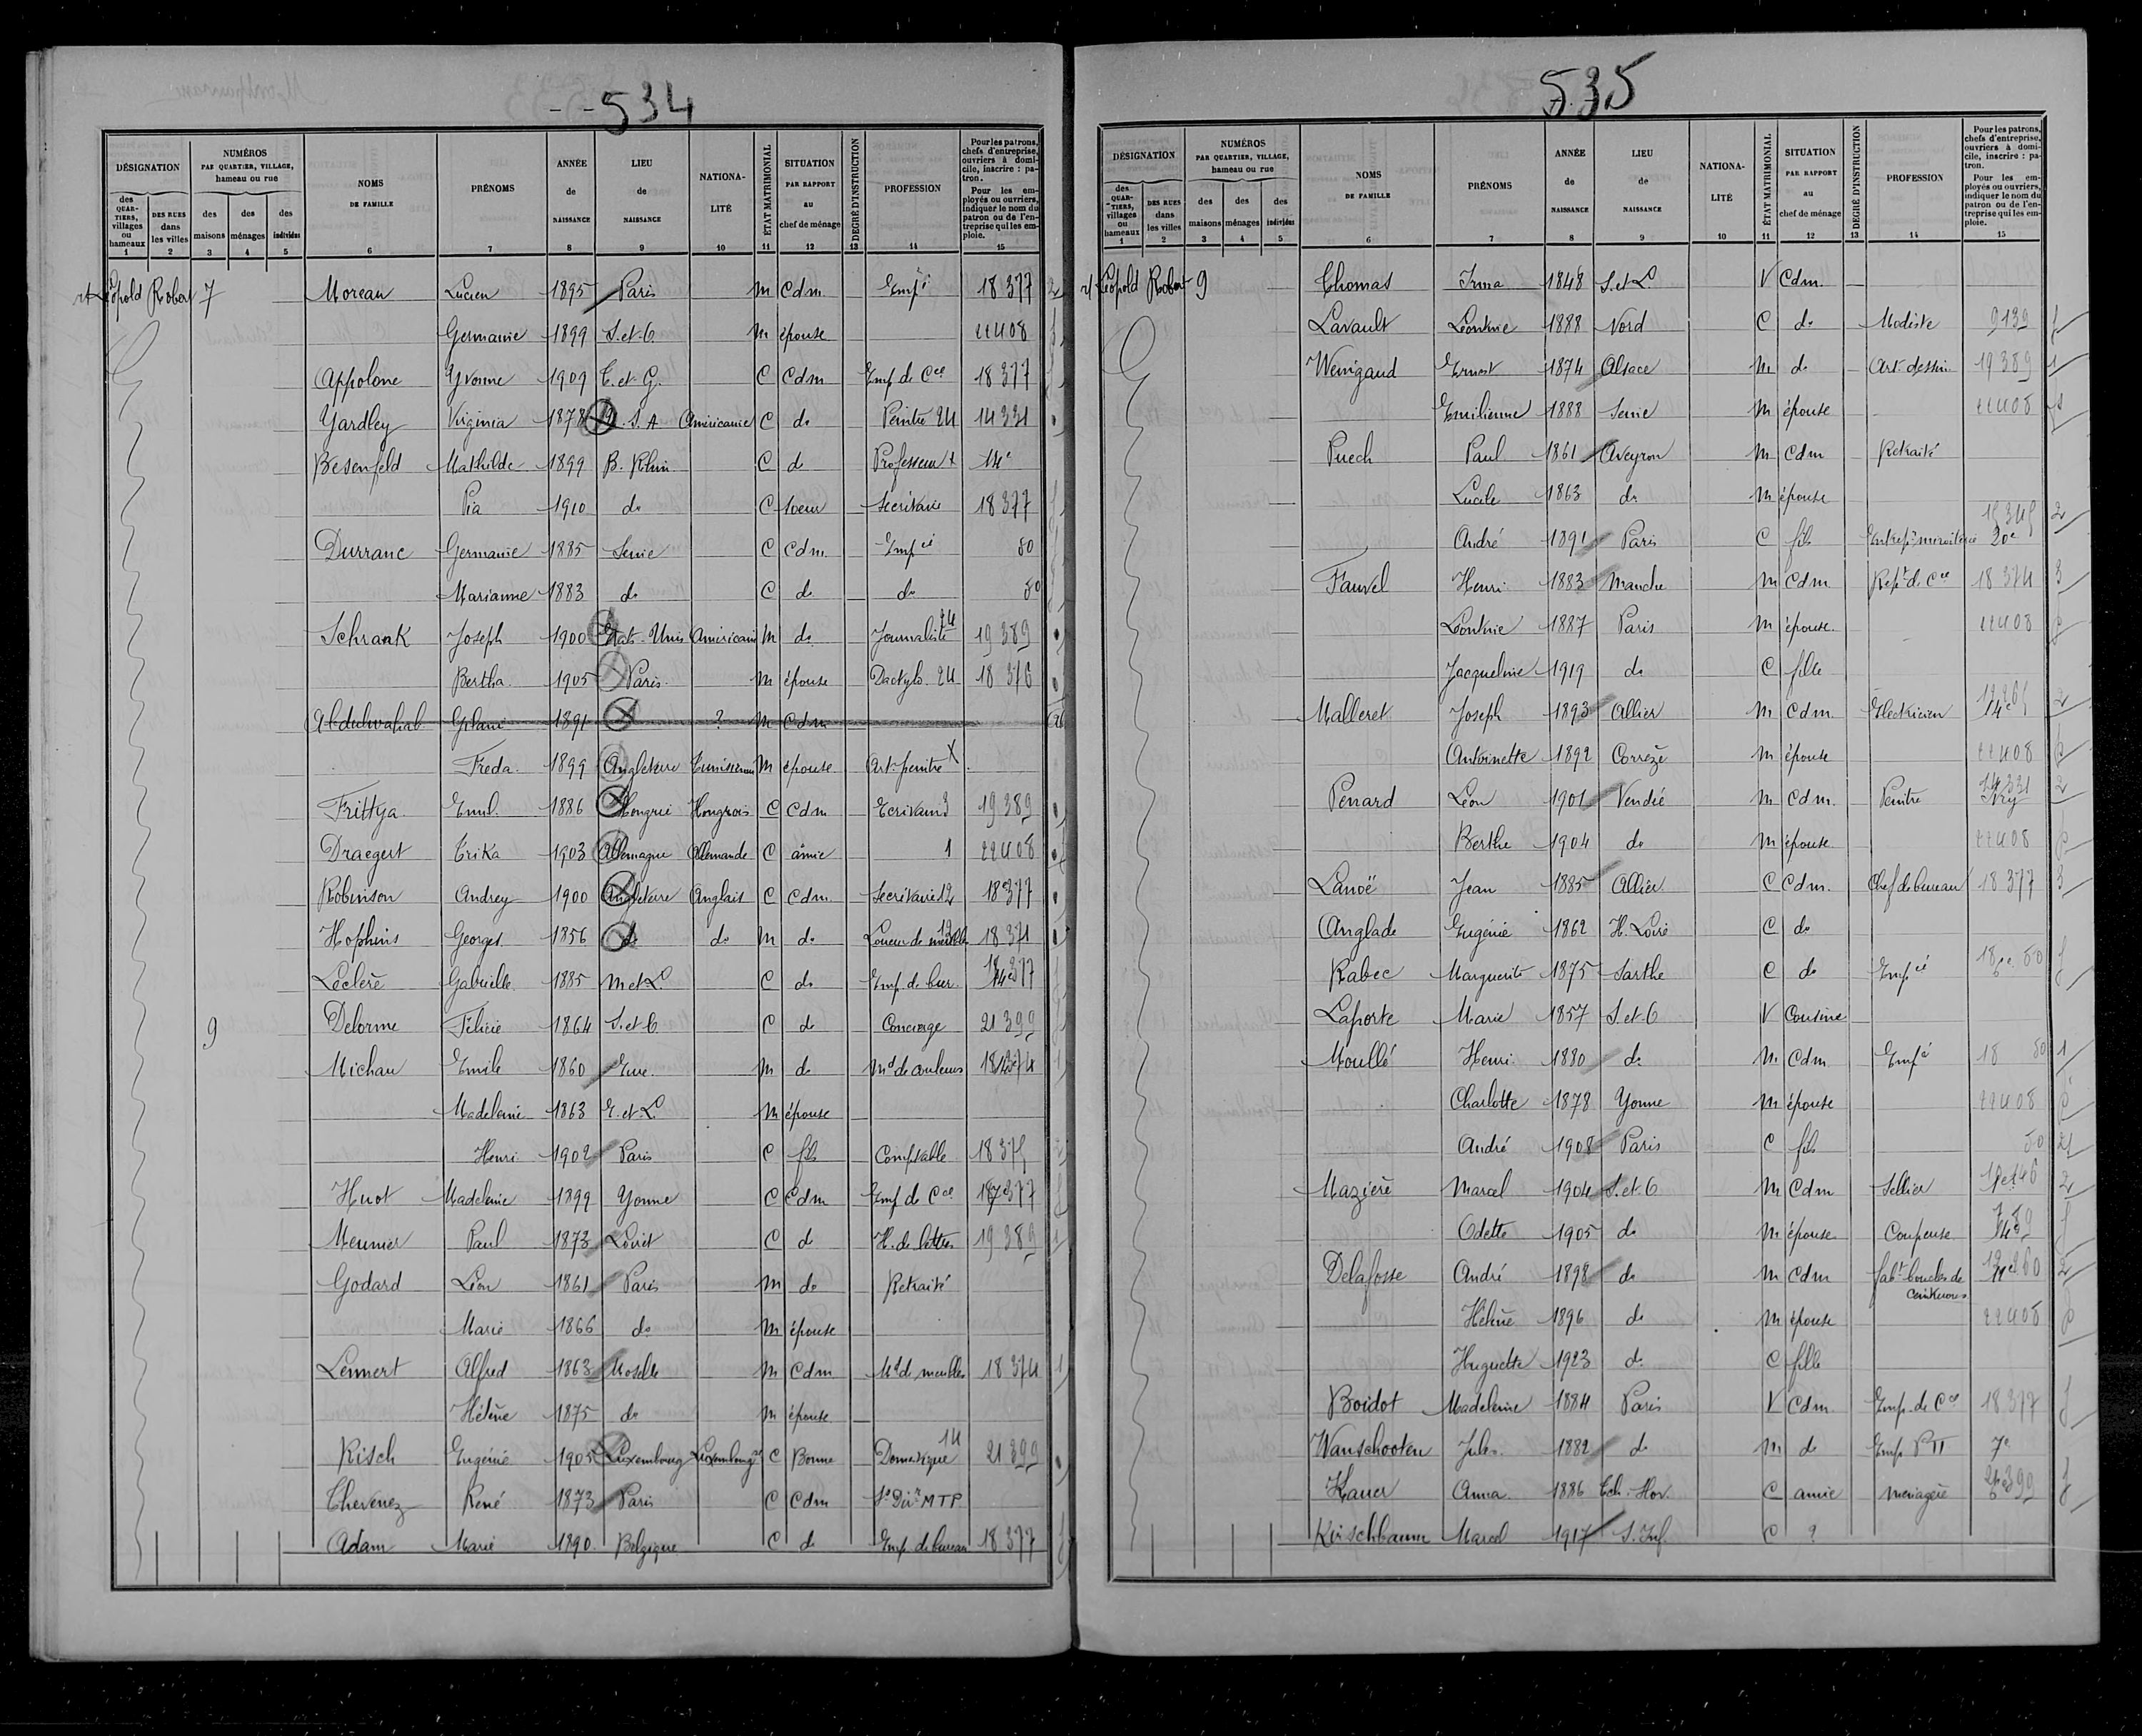 534
DÉSIGNATION
NUMÉROS PAR QUARTIER, VILLAGE, hameau ou rue
NOMS DE FAMILLE
PRÉNOMS
ANNÉE de NAISSANCE
LIEU de NAISSANCE
NATIONALITÉ
ÉTAT MATRIMONIAL
SITUATION PAR RAPPORT au chef de ménage
DEGRÉ D'INSTRUCTION
PROFESSION
Pour les patrons, chefs d'entreprise, ouvriers à domicile, inscrire : patron.
Pour les employés ou ouvriers, indiquer le nom du patron ou de l'entreprise qui les emploie.
des QUARTIERS, villages ou hameaux
DES RUES dans les villes
des maisons
des ménages
des individus
1 2 3 4 5 6 7 8 9 10 11 12 13 14 15
Léopold Robert 7 Moreau Lucien 1895 Paris M Cdm Empé 18 377 2
Germaine 1899 S.et.O M épouse 22408
Appolone Yvonne 1909 C Cdm Emp de Cce 18 377
Yardley Virginia 1878 U.S.A Américaine C do Peintre 24 14 331
Besenfeld Mathilde 1899 B. Rhin C do Professeur 14e
Pia 1910 do C soeur Secrétaire 18 377
Durranc Germaine 1885 Seine C Cdm Empée 80
Marianne 1883 do C do do 80
Schrank Joseph 1900 Etats-Unis Américain M do Journaliste 24 19 389
Bertha 1905 Paris M épouse Dactylo 24 18 376
Abdulwahab Gilani 1891 ? M Cdm
Freda 1899 Angleterre Tunisienne M épouse Art. peintre
Frittya Emil 1886 Hongrie Hongrois C Cdm Ecrivain 3 19 389
Draegert Erika 1903 Allemagne Allemande C amie 1 22408
Robinson Audrey 1900 Angleterre Anglais C Cdm Secrétaire 12 18 377
Hophins Georges 1856 do do M do Loueur de meublés 18 371
Leclère Gabrielle 1885 M et L. C do Emp. de bur. 18 377
9 Delorme Félicie 1864 S.et O C do Concierge 21 399
Michau Emile 1860 Eure M do Md de couleurs 18 374 1
Madeleine 1863 E. et. L. M épouse
Henri 1902 Paris C fils Comptable 18 375
Huot Madeleine 1899 Yonne C Cdm Emp de Cce 18 377
Meunier Paul 1873 Loiret C do H. de lettres 19 389 1
Godard Léon 1861 Paris M do Retraité
Marie 1866 do M épouse
Lennert Alfred 1863 Moselle M Cdm Md de meubles 18 374 1
Hélène 1875 do M épouse
Risch Eugénie 1905 Luxembourg C Bonne Domestique 14 21 399
Thevenez René 1873 Paris C Cdm MTP
Adam Marie 1890 Belgique C do Emp. de bureau 18 377
535
DÉSIGNATION
NUMÉROS PAR QUARTIER, VILLAGE, hameau ou rue
NOMS DE FAMILLE
PRÉNOMS
ANNÉE de NAISSANCE
LIEU de NAISSANCE
NATIONALITÉ
ÉTAT MATRIMONIAL
SITUATION PAR RAPPORT au chef de ménage
DEGRÉ D'INSTRUCTION
PROFESSION
Pour les patrons, chefs d'entreprise, ouvriers à domicile, inscrire : patron.
Pour les employés ou ouvriers, indiquer le nom du patron ou de l'entreprise qui les emploie.
des QUARTIERS, villages ou hameaux
DES RUES dans les villes
des maisons
des ménages
des individus
1 2 3 4 5 6 7 8 9 10 11 12 13 14 15
Léopold Robert 9 Thomas Irma 1848 S.et L. V Cdm.
Lavault Léontine 1888 Nord C do Modiste 9 139
Wenigaud Ernest 1874 Alsace M do Art. dessin. 19 389 1
Emilienne 1888 Seine M épouse 22408
Puech Paul 1861 Aveyron M Cdm Retraité
Lucile 1863 do M épouse
André 1891 Paris C fils 20e 2
Fauvel Henri 1883 Manche M Cdm Rept de Cce 18 374 3
Léontine 1887 Paris M épouse 22408
Jacqueline 1919 do C fille
Malleret Joseph 1893 Allier M Cdm Electricien 2
Antoinette 1892 Corrèze M épouse 22408
Penard Léon 1901 Vendée M Cdm. Peintre 14 331 2
Berthe 1904 do M épouse 22408
Lanoë Jean 1885 Allier C Cdm. Chef de bureau 18 377 3
Anglade Eugénie 1862 H. Loire C do
Rabec Marguerite 1875 Sarthe C do Empée 18 80
Laporte Marie 1857 S.et O V Cousine
Moullé Henri 1880 do M Cdm Empé 18 80 1
Charlotte 1878 Yonne M épouse 22408
André 1908 Paris C fils 80 2
Mazière Marcel 1904 S.et O M Cdm Sellier 2
Odette 1905 do M épouse Coupeuse
Delafosse André 1898 do M Cdm fabt boucles de ceintures 2
Hélène 1896 do M épouse 22408
Huguette 1923 do C fille
Boidot Madeleine 1884 Paris V Cdm Emp. de Cce 18 377
Wanschooten Jules 1882 do M do Emp PTT 7e
Hauer Anna 1886 C amie ménagère
Kirschbaum Marcel 1917 S. Inf. C ?